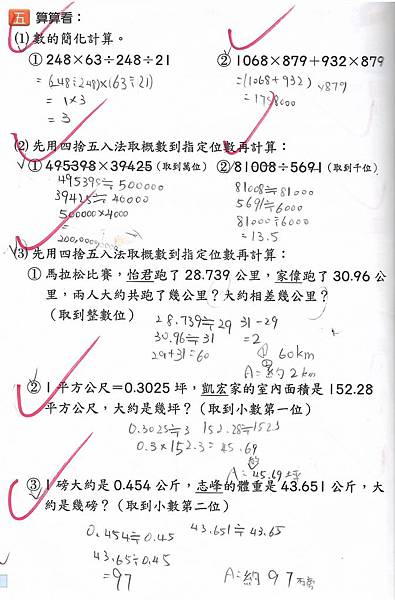 五 算算看：
(1)數的簡化計算。
①248×63÷248÷21
=(248÷248)×(63÷21)
=1×3
=3
②1068×879+932×879
=(1068+932)×879
=1758000
(2)先用四捨五入法取概數到指定位數再計算：
①495398×39425(取到萬位)
495398≒500000
39425≒40000
500000×4000
=
②81008÷5691(取到千位)
81008≒81000
5691≒6000
81000÷6000
=13.5
(3)先用四捨五入法取概數到指定位數再計算：
①馬拉松比賽，怡君跑了28.739公里，家偉跑了30.96公
里，兩人大約共跑了幾公里？大約相差幾公里？
(取到整數位)
28.739≒29
30.96≒31
29+31=60
31-29
=2
① 60km
A=②約2km
②1平方公尺=0.3025坪，凱宏家的室內面積是152.28
平方公尺，大約是幾坪？(取到小數第一位)
0.3025≒3 152.28≒152.3
0.3×152.3=45.69
A=45.69坪
③1磅大約是0.454公斤，志峰的體重是43.651公斤，大
約是幾磅？(取到小數第二位)
0.454≒0.45 43.651≒43.65
43.65÷0.45
=97
A=約97磅